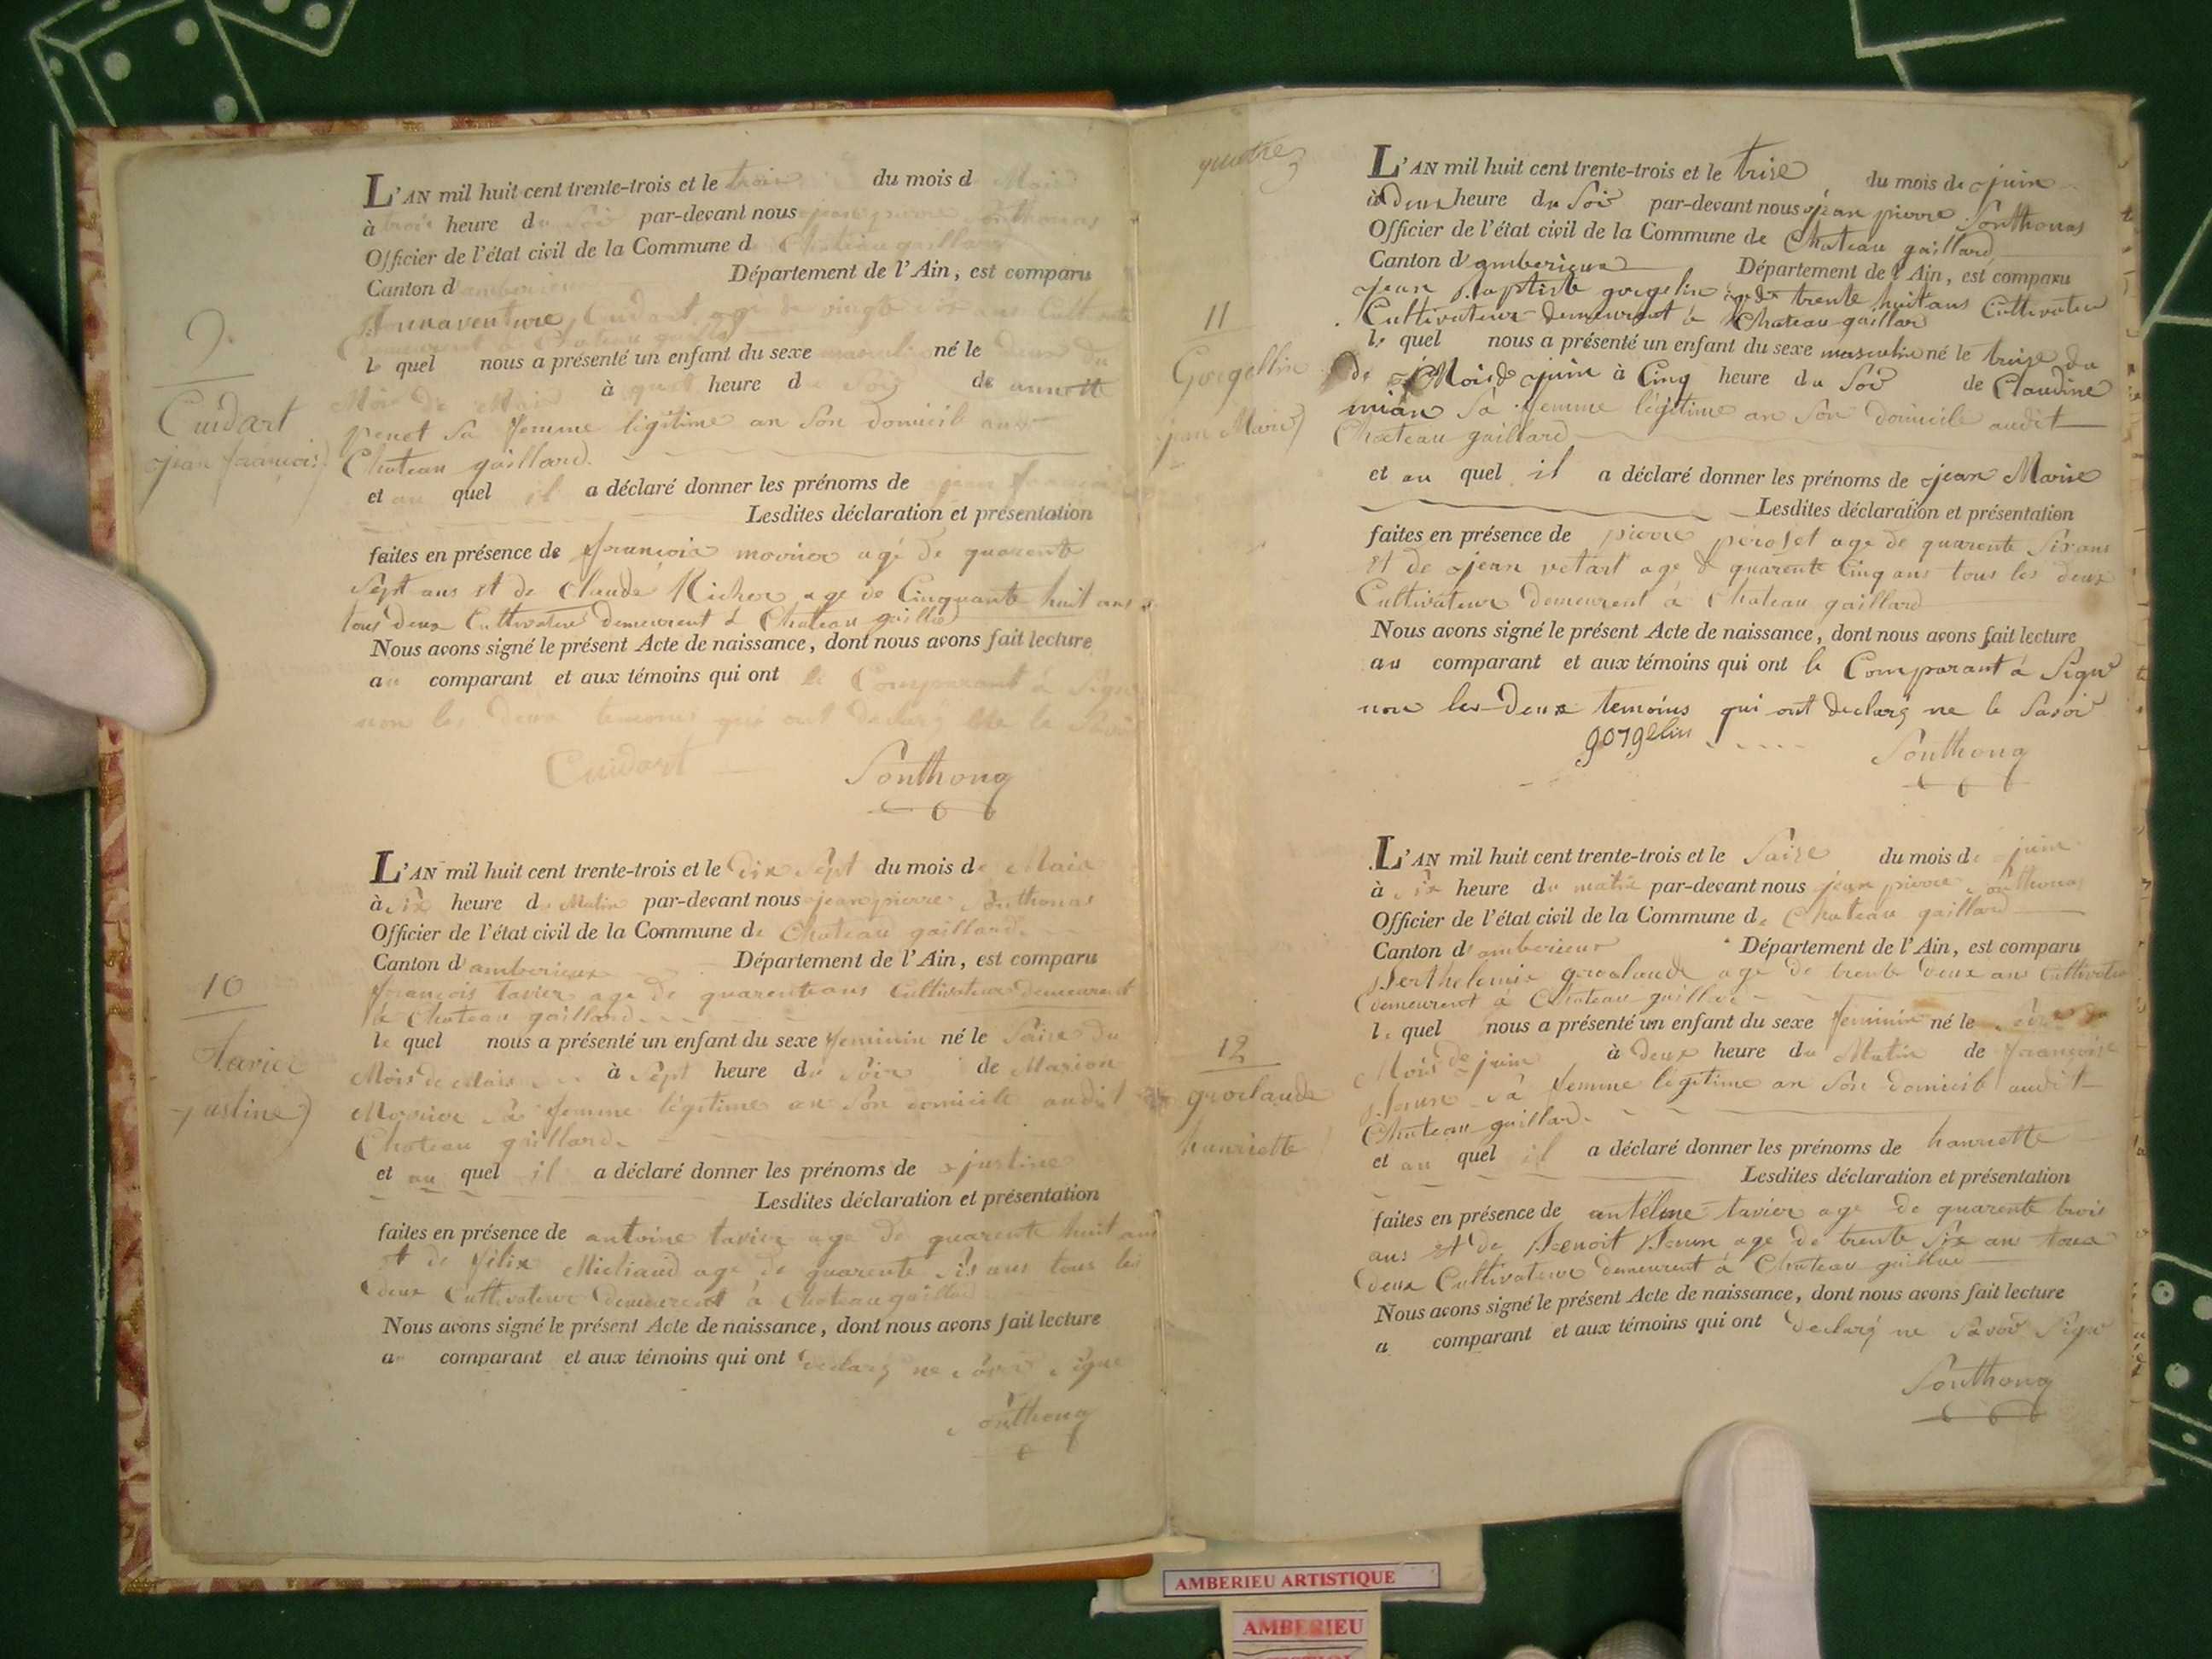 9.
Cuidart
jean françois
L'AN mil huit cent trente-trois et le trois du mois d Mais
à trois heure du Soir par-devant nous jean pierre Sonthonas
Officier de l'état civil de la Commune d Chateau gaillard
Canton d'amberieux Département de l'Ain, est comparu
Bonnaventure Cuidart agé de vingt six ans Cult
demeurent à Chateau gaillar
le quel nous a présenté un enfant du sexe masculin né le deux du
Mois de Mais à heure d Soir de annette
penet Sa femme légitime an Son domicil audit
Chateau gaillard.
et au quel il a déclaré donner les prénoms de jean françois
Lesdites déclaration et présentation
faites en présence de françois movuer agé de quarente
Sept ans et de Claude Richer age de Cinquante huit ans
tous deux Cultivateur demeurent à Chateau gaillar
Nous avons signé le présent Acte de naissance, dont nous avons fait lecture
au comparant et aux témoins qui ont le Comparant à Signé
non les deux temoins qui ont declarez ne le Savoir
Cuidart Sonthona
10
Tavier
justine
L'AN mil huit cent trente-trois et le dix Sept du mois de Mais
à Six heure du Matin par-devant nous jean pierre Sonthonas
Officier de l'état civil de la Commune de Chateau gaillard.
Canton d'amberieux Département de l'Ain, est comparu
françois Tavier age de quarente ans Cultivateur demeurent
à Chateau gaillard
le quel nous a présenté un enfant du sexe feminin né le Saise du
Mois de Mais à Sept heure du Soir de Marion
Sa femme légitime an Son domicile audit
Chateau gaillard.
et au quel il a déclaré donner les prénoms de justine
Lesdites déclaration et présentation
faites en présence de antoine tavier age de quarente huit ans
et de félix Michaud age de quarente Six ans tous les
deux Cultivateur demeurent à Chateau gaillar
Nous avons signé le présent Acte de naissance, dont nous avons fait lecture
au comparant et aux témoins qui ont declarez ne Savoir Signe
Sonthona
quatre
11
Gorgellin
jean Marie
L'AN mil huit cent trente-trois et le trise du mois de juin
à deux heure du Soir par-devant nous jean pierre Sonthonas
Officier de l'état civil de la Commune de Chateau gaillard
Canton d'amberieux Département de l'Ain, est comparu
jean Baptiste gorgelin age de trente huit ans Cultivateur
Cultivateur demeurent à Chateau gaillar
le quel nous a présenté un enfant du sexe masculin né le traise du
de Mois de juin à Cinq heure du Soir de Claudine
mian Sa femme légitime an Son domicile audit
Chateau gaillard
et au quel il a déclaré donner les prénoms de jean Marie
Lesdites déclaration et présentation
faites en présence de pierre peroset age de quarente Six ans
et de jean vetart age de quarente Cinq ans tous les deux
Cultivateur demeurent à Chateau gaillard
Nous avons signé le présent Acte de naissance, dont nous avons fait lecture
au comparant et aux témoins qui ont le Comparant à Signé
non les deux temoins qui ont declarez ne le Savoir
gorgelin Sonthona
12
groclaude
hanriette
L'AN mil huit cent trente-trois et le Saise du mois de juin
à Six heure du matin par-devant nous jean pierre Sonthonas
Officier de l'état civil de la Commune de Chateau gaillard
Canton d'amberieux Département de l'Ain, est comparu
Berthelemie groclaude age de trente deux ans Cultivateur
demeurent à Chateau gaillar
le quel nous a présenté un enfant du sexe feminin né le
Mois de juin à deux heure du Matin de françoise
Sa femme légitime an Son domicile audit
Chateau gaillard.
et au quel il a déclaré donner les prénoms de hanriette
Lesdites déclaration et présentation
faites en présence de antelme tavier age de quarente trois
ans et de Benoit age de trente Six ans tous
deux Cultivateur demeurent à Chateau gaillar
Nous avons signé le présent Acte de naissance, dont nous avons fait lecture
a comparant et aux témoins qui ont declarez ne Savoir Signe
Sonthona
AMBERIEU ARTISTIQUE
AMBERIEU